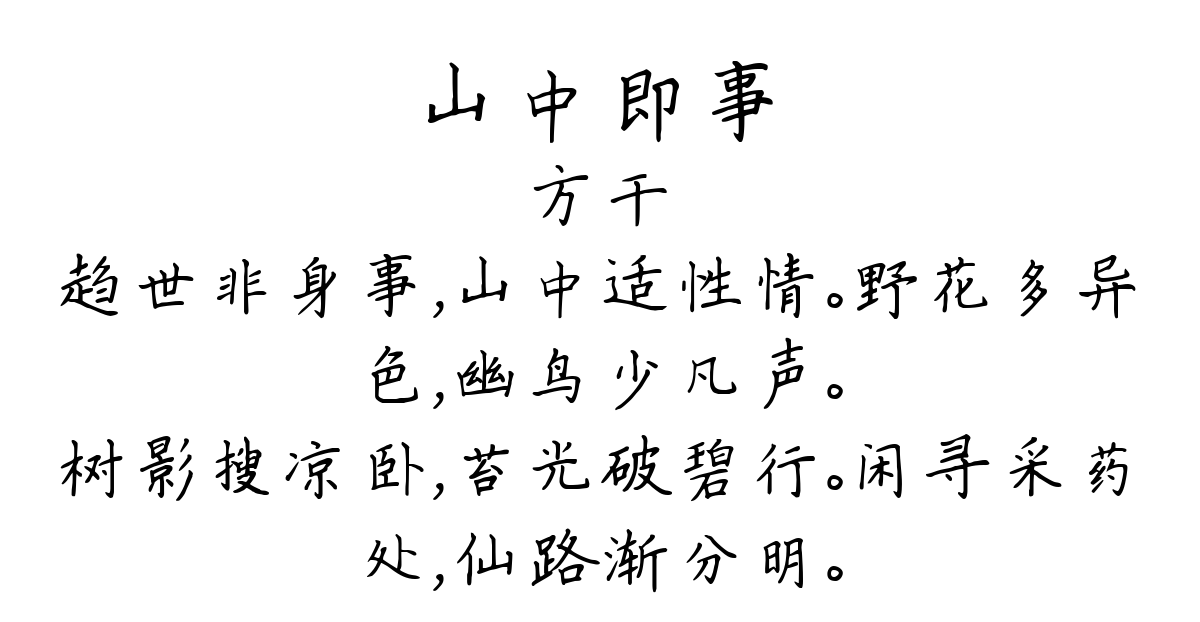 山中即事
方干
趋世非身事,山中适性情。野花多异
色,幽鸟少凡声。
树影搜凉卧,苔光破碧行。闲寻采药
处,仙路渐分明。